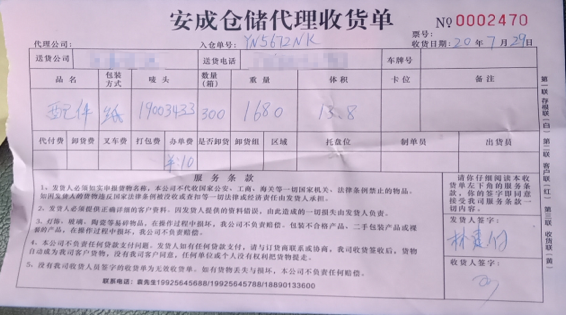 安成仓储代理收货单
No 0002470
票号：
代理公司： 入仓单号： YN5672NK 收货日期：20年7月29日
送货公司 送货电话 车牌号
品名 包装方式 唛头 数量(箱) 重量 体积 卡位 备注
配件 纸 19003433 300 1680 13.8
代付费 卸货费 叉车费 打包费 办单费 是否卸货 卸货组 区域 托盘位 制单员 出货员
¥:10
服务条款
1、发货人必须如实申报货物名称，本公司不代收国家公安，工商，海关等一切国家机关，法律条例禁止的物品。
如因发货人的货物违反国家法律条例被没收或查扣等一切法律或经济责任由发货人承担。
2、发货人必须提供正确详细的客户资料，因发货人提供的资料错误，由此造成的一切损失由发货人负责。
3、灯饰、玻璃，陶瓷等易碎物品，在操作过程中损坏，我公司不负责赔偿。包装不合格产品，二手包装产品或裸
着的产品，在操作过程中损坏，我公司不负责赔偿。
4、本公司不负责任何货款支付问题。发货人如有任何货款支付，请与订货商联系或协商，我司收货签收后，货物
自动成为我司客户货物，没有我司客户同意，任何单位或个人没有权利把货物提走。
5、没有我司收货人员签字的收货单为无效收货单。如有货物丢失与损坏，本公司不负责任何赔偿。
联系电话：袁先生19925645688/19925645788/18890133600
请你仔细阅读本收
货单左下角的服务条
款，你的签字即同意
接受我司服务条款一
切内容：
发货人签字：
收货人签字：
第一联 存根联（白） 第二联 客户联（红） 第三联 收货联（黄）